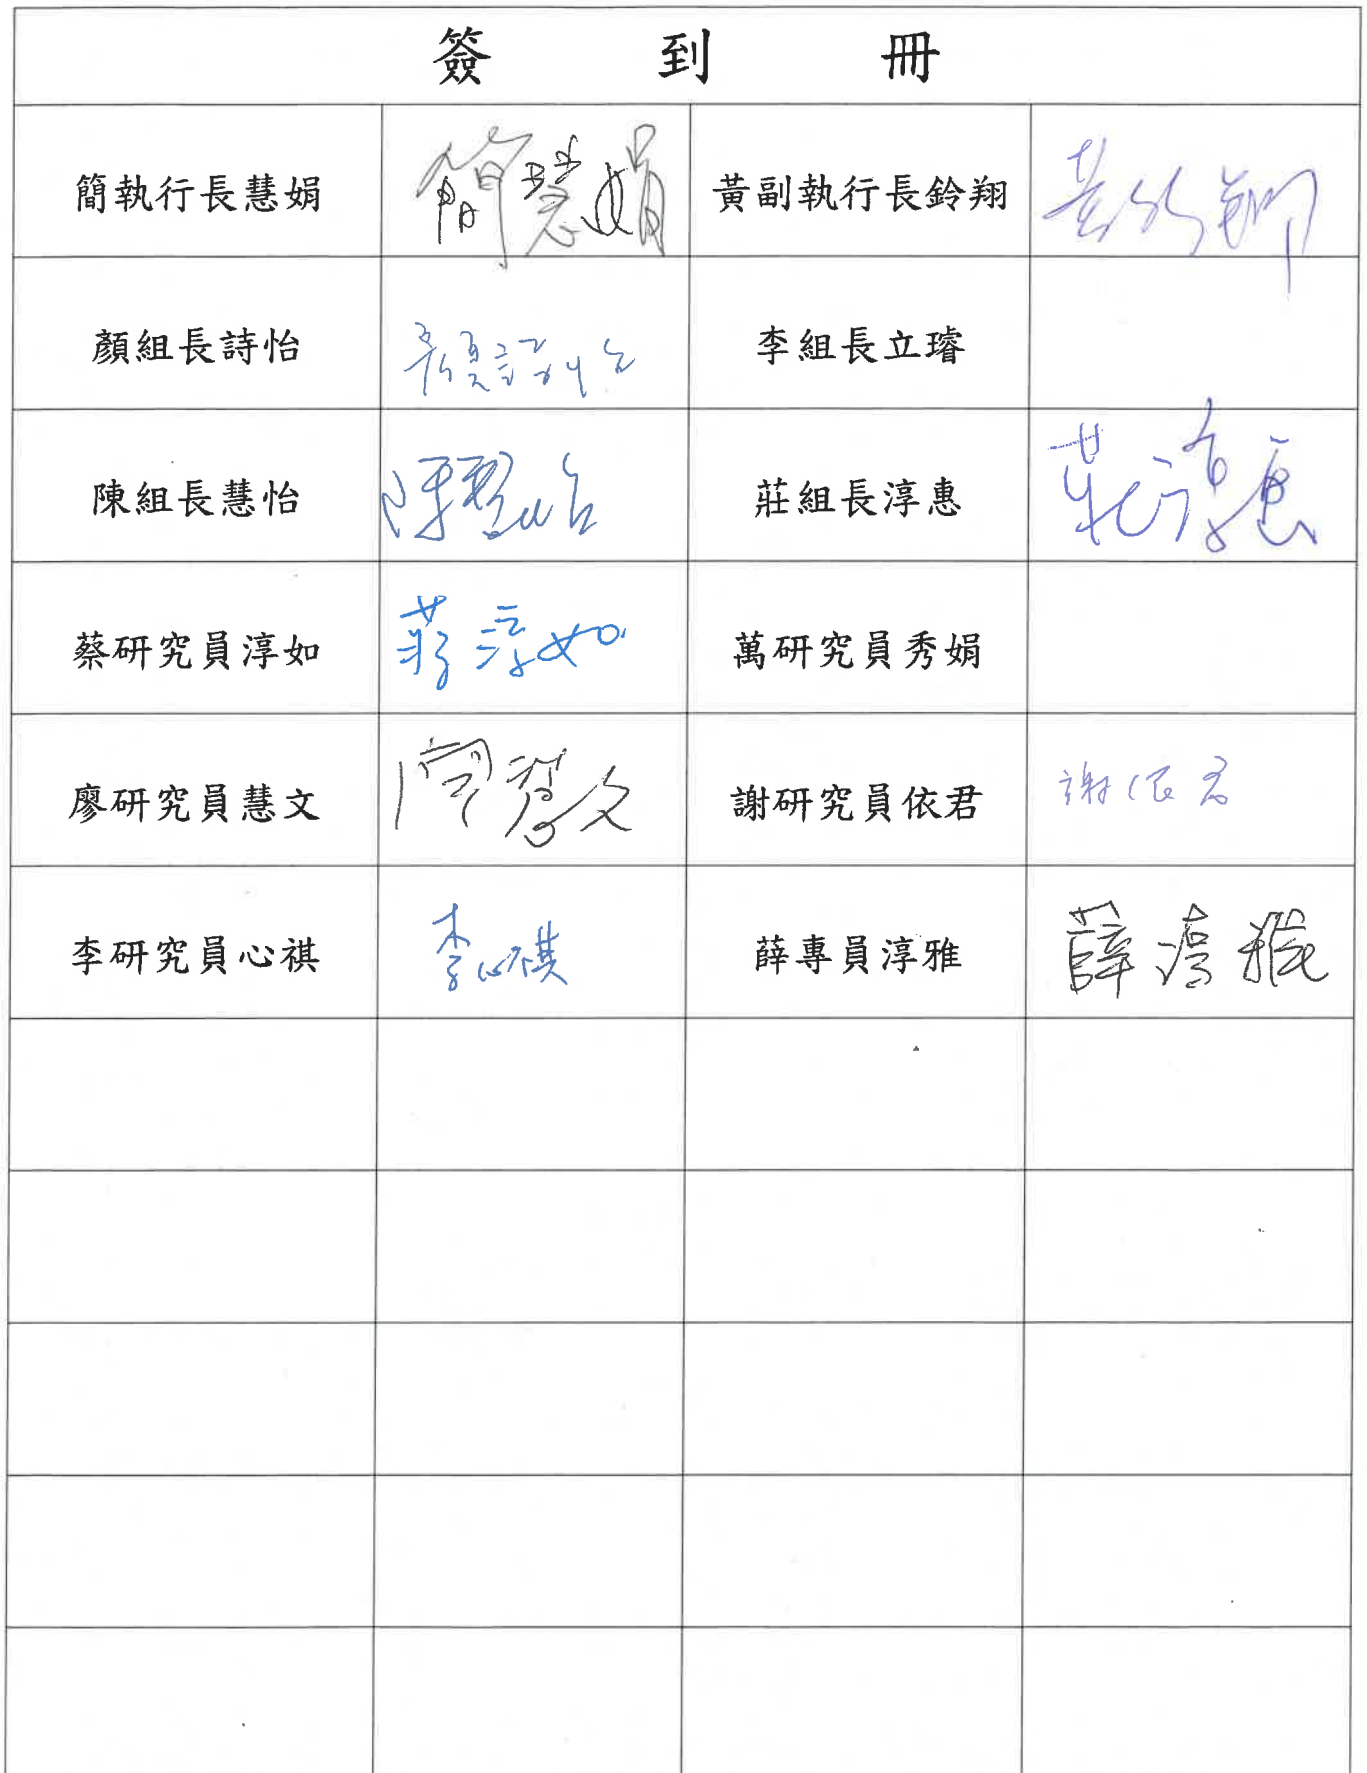 簽到冊
簡執行長慧娟 簡慧娟 黃副執行長鈴翔 黃鈴翔
顏組長詩怡 顏詩怡 李組長立璿
陳組長慧怡 陳慧怡 莊組長淳惠 莊淳惠
蔡研究員淳如 蔡淳如 萬研究員秀娟
廖研究員慧文 廖慧文 謝研究員依君 謝依君
李研究員心祺 李心祺 薛專員淳雅 薛淳雅